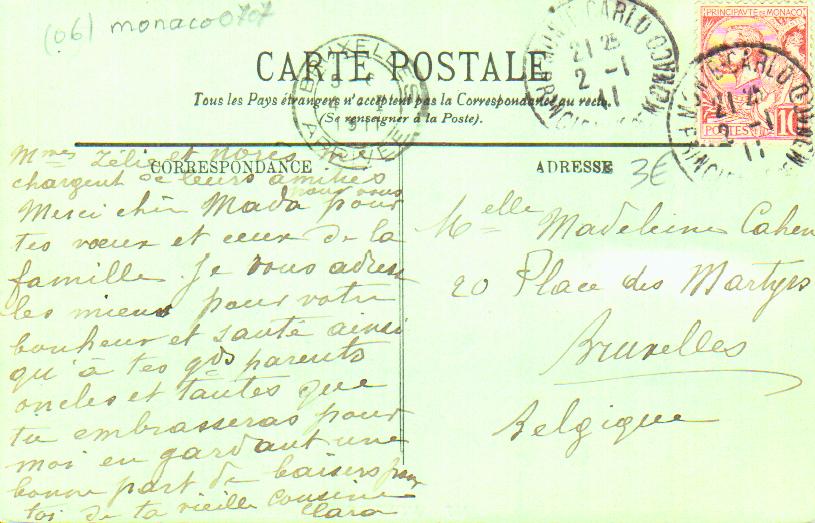 (06) monaco 0707
CARTE POSTALE
Tous les Pays étrangers n'acceptent pas la Correspondance au recto.
(Se renseigner à la Poste).
PRINCIPAUTÉ DE MONACO
POSTES 10
MONTE-CARLO
21 25
2 -1
11
MONTE-CARLO
21 25
2 -1
11
BRUXELLES
1911
ARRIVÉE
CORRESPONDANCE
Mmes Zélie et me
chargent de leurs amitiés
pour vous
Merci chèr Mada pour
tes vœux et ceux de la
famille. Je vous adresse
les miens pour votre
bonheur et santé ainsi
qu'à tes gds parents
oncles et tantes que
tu embrasseras pour
moi en gardant une
bonne part de baisers pour
toi de ta vieille cousine
Clara
ADRESSE
3€
Melle Madeleine Cahen
20 Place des Martyrs
Bruxelles
Belgique